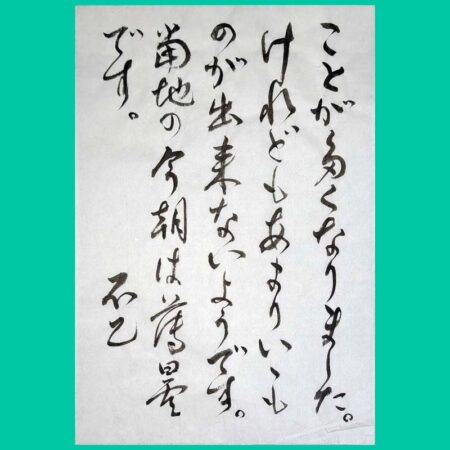 ことが多くなりました。
けれどもあまりいゝも
のが出来ないようです。
当地の今朝は薄曇
です。
不乙